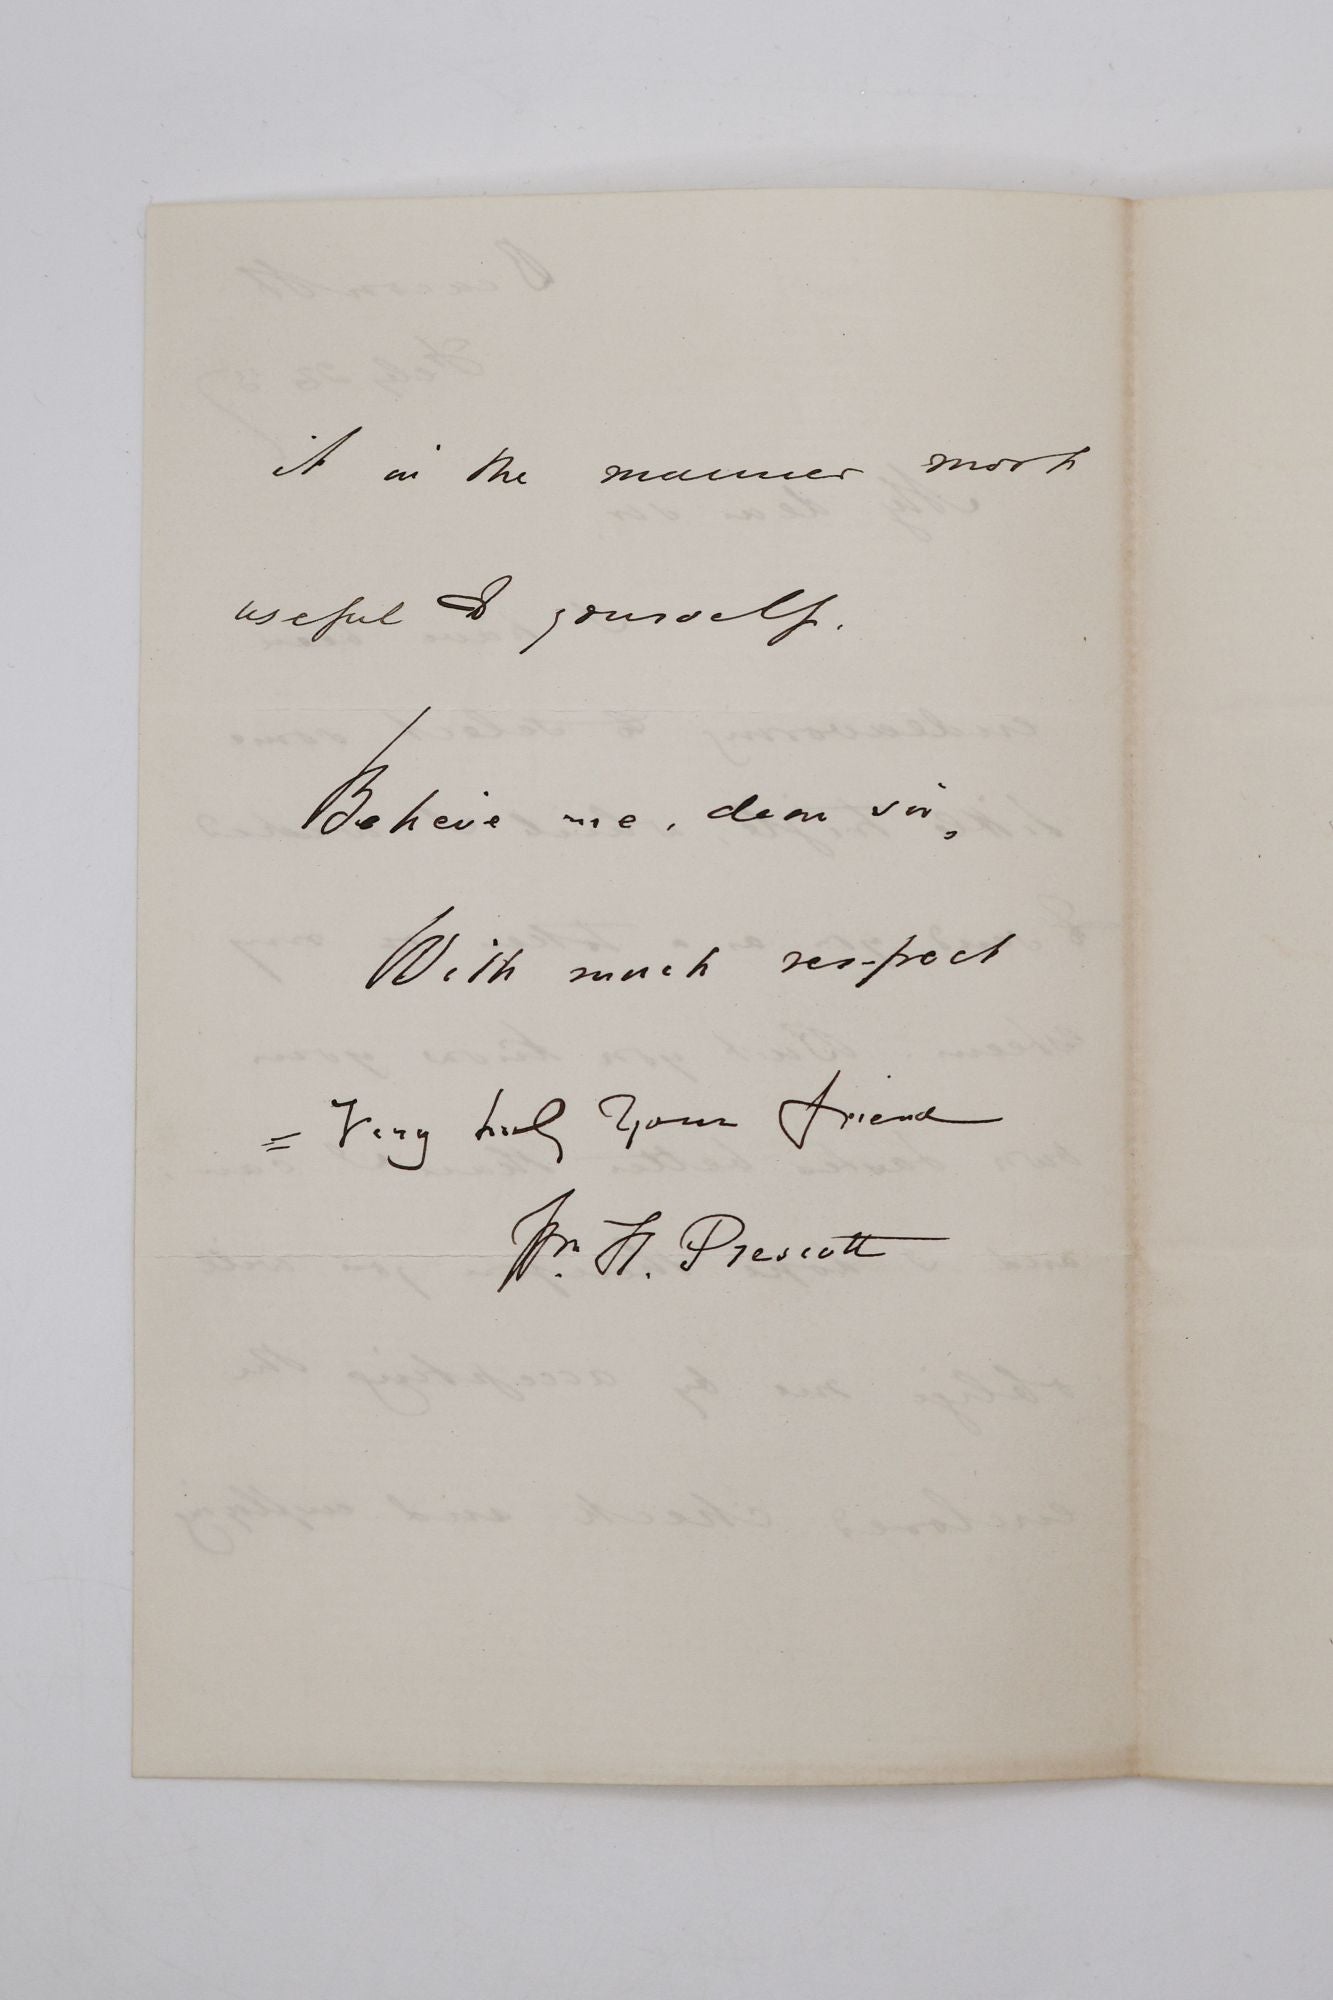 it in the manner most
useful to yourself.
Believe me, dear sir,
With much respect
= Very truly your friend
Wm. H. Prescott